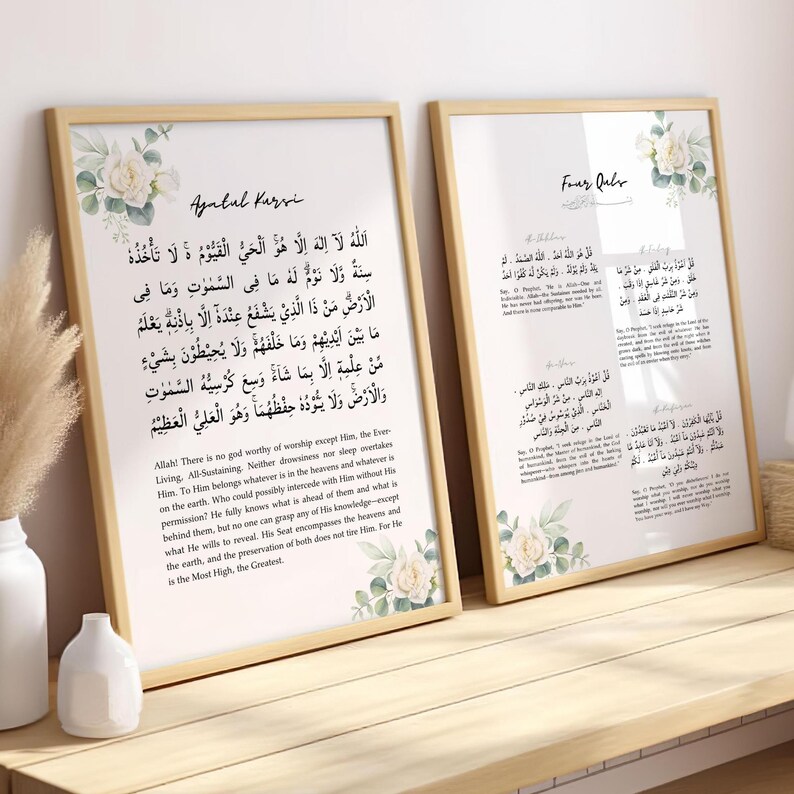 Ayatul Kursi
اَللّٰهُ لَآ اِلٰهَ اِلَّا هُوَۚ اَلْحَيُّ الْقَيُّوْمُ ەۚ لَا تَأْخُذُهٗ
سِنَةٌ وَّلَا نَوْمٌؕ لَهٗ مَا فِى السَّمٰوٰتِ وَمَا فِى
الْاَرْضِؕ مَنْ ذَا الَّذِيْ يَشْفَعُ عِنْدَهٗٓ اِلَّا بِاِذْنِهٖؕ يَعْلَمُ
مَا بَيْنَ اَيْدِيْهِمْ وَمَا خَلْفَهُمْۚ وَلَا يُحِيْطُوْنَ بِشَيْءٍ
مِّنْ عِلْمِهٖٓ اِلَّا بِمَا شَآءَۚ وَسِعَ كُرْسِيُّهُ السَّمٰوٰتِ
وَالْاَرْضَۚ وَلَا يَـُٔوْدُهٗ حِفْظُهُمَاۚ وَهُوَ الْعَلِيُّ الْعَظِيْمُ
Allah! There is no god worthy of worship except Him, the Ever-
Living, All-Sustaining. Neither drowsiness nor sleep overtakes
Him. To Him belongs whatever is in the heavens and whatever is
on the earth. Who could possibly intercede with Him without His
permission? He fully knows what is ahead of them and what is
behind them, but no one can grasp any of His knowledge—except
what He wills to reveal. His Seat encompasses the heavens and
the earth, and the preservation of both does not tire Him. For He
is the Most High, the Greatest.
Four Quls
Al-Ikhlas
قُلْ هُوَ اللّٰهُ اَحَدٌ . اَللّٰهُ الصَّمَدُ . لَمْ
يَلِدْ وَلَمْ يُوْلَدْ . وَلَمْ يَكُنْ لَّهٗ كُفُوًا اَحَدٌ
Say, O Prophet, "He is Allah—One and
Indivisible. Allah—the Sustainer needed by all.
He has never had offspring, nor was He born.
And there is none comparable to Him."
Al-Falaq
قُلْ اَعُوْذُ بِرَبِّ الْفَلَقِ . مِنْ شَرِّ مَا
خَلَقَ . وَمِنْ شَرِّ غَاسِقٍ اِذَا وَقَبَ .
وَمِنْ شَرِّ النَّفّٰثٰتِ فِى الْعُقَدِ . وَمِنْ
شَرِّ حَاسِدٍ اِذَا حَسَدَ
Say, O Prophet, "I seek refuge in the Lord of the
daybreak from the evil of whatever He has
created, and from the evil of the night when it
grows dark, and from the evil of those witches
casting spells by blowing onto knots, and from
the evil of an envier when they envy."
An-Nas
قُلْ اَعُوْذُ بِرَبِّ النَّاسِ . مَلِكِ النَّاسِ .
اِلٰهِ النَّاسِ . مِنْ شَرِّ الْوَسْوَاسِ
الْخَنَّاسِ . الَّذِيْ يُوَسْوِسُ فِيْ صُدُوْرِ
النَّاسِ . مِنَ الْجِنَّةِ وَالنَّاسِ
Say, O Prophet, "I seek refuge in the Lord of
humankind, the Master of humankind, the God
of humankind, from the evil of the lurking
whisperer—who whispers into the hearts of
humankind—from among jinn and humankind."
Al-Kafirun
قُلْ يٰٓاَيُّهَا الْكٰفِرُوْنَ . لَآ اَعْبُدُ مَا تَعْبُدُوْنَ
. وَلَآ اَنْتُمْ عٰبِدُوْنَ مَآ اَعْبُدُ . وَلَآ اَنَا عَابِدٌ مَّا
عَبَدْتُّمْ . وَلَآ اَنْتُمْ عٰبِدُوْنَ مَآ اَعْبُدُ . لَكُمْ
دِيْنُكُمْ وَلِيَ دِيْنِ
Say, O Prophet, "O you disbelievers! I do not
worship what you worship, nor do you worship
what I worship. I will never worship what you
worship, nor will you ever worship what I worship.
You have your way, and I have my Way."